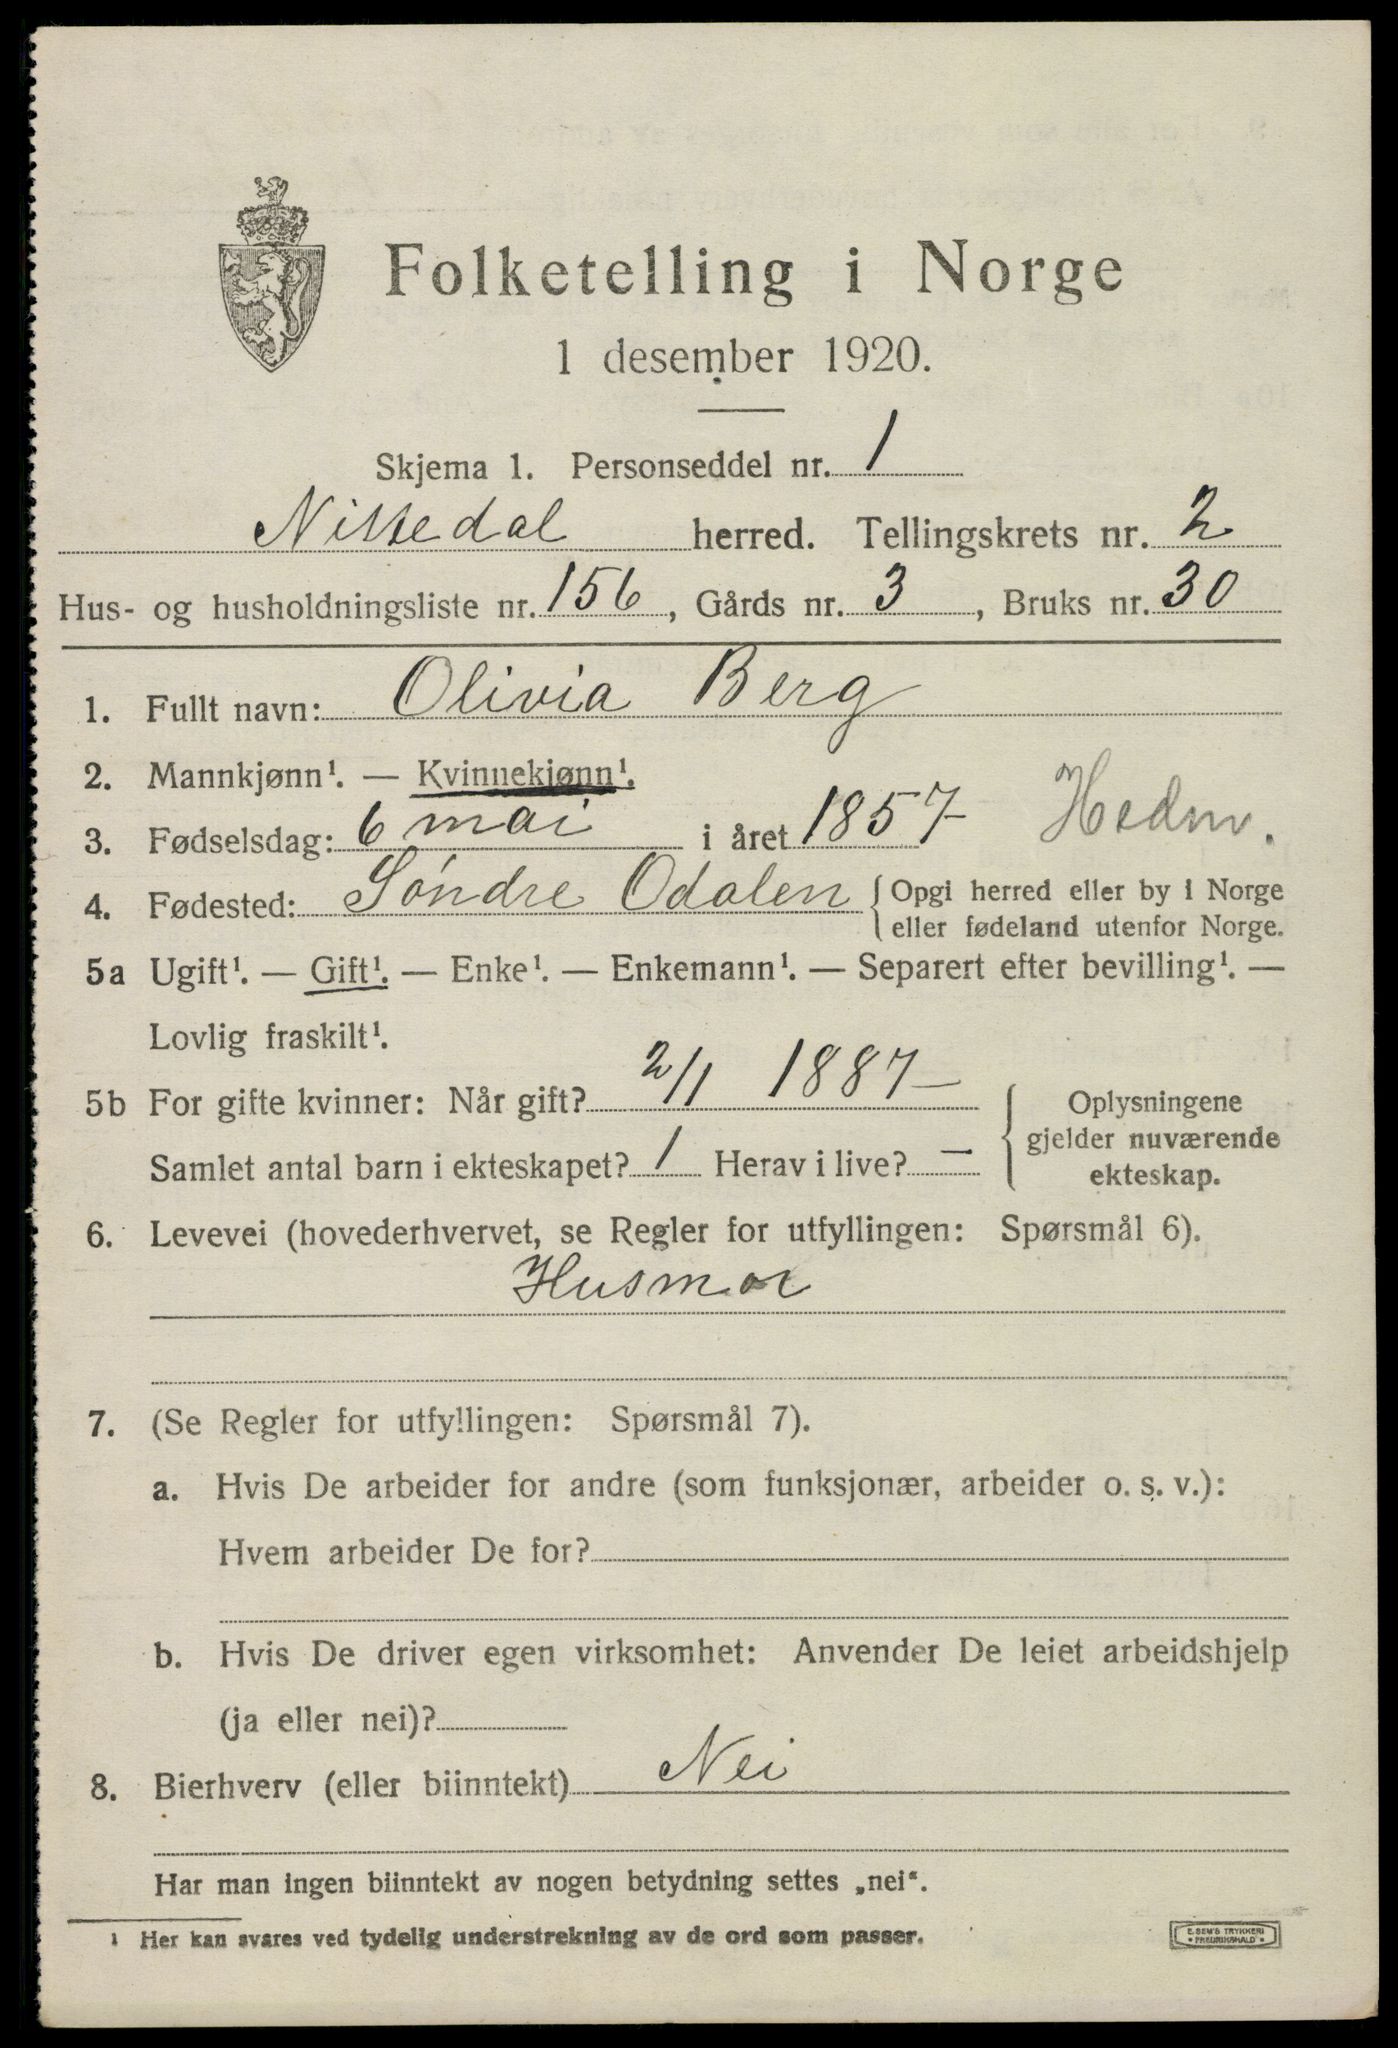 Folketelling i Norge
1 desember 1920.
Skjema 1. Personseddel nr. 1
Nittedal herred. Tellingskrets nr. 2
Hus- og husholdningsliste nr. 156, Gårds nr. 3, Bruks nr. 30
1. Fullt navn: Olivia Berg
2. Mannkjønn¹. — Kvinnekjønn¹.
3. Fødselsdag: 6 mai i året 1857 Hedm.
4. Fødested: Søndre Odalen { Opgi herred eller by i Norge
eller fødeland utenfor Norge.
5a Ugift¹. — Gift¹. — Enke¹. — Enkemann¹. — Separert efter bevilling¹. —
Lovlig fraskilt¹.
5b For gifte kvinner: Når gift? 2/1 1887 { Oplysningene
gjelder nuværende
Samlet antal barn i ekteskapet? 1 Herav i live? —
ekteskap.
6. Levevei (hovederhvervet, se Regler for utfyllingen: Spørsmål 6).
Husmor
7. (Se Regler for utfyllingen: Spørsmål 7).
a. Hvis De arbeider for andre (som funksjonær, arbeider o. s. v.):
Hvem arbeider De for?
b. Hvis De driver egen virksomhet: Anvender De leiet arbeidshjelp
(ja eller nei)?
8. Bierhverv (eller biinntekt) Nei
Har man ingen biinntekt av nogen betydning settes „nei“.
¹ Her kan svares ved tydelig understrekning av de ord som passer.
E. SEM'S TRYKKERI
• FREDRIKSHALD •